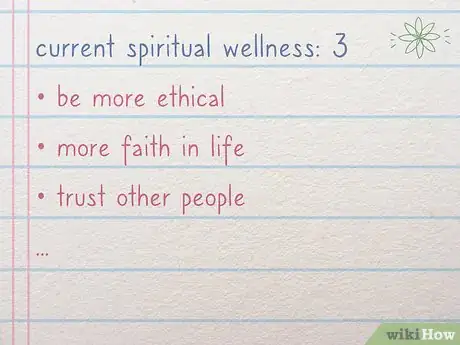 current spiritual wellness: 3
• be more ethical
• more faith in life
• trust other people
...
wikiHow